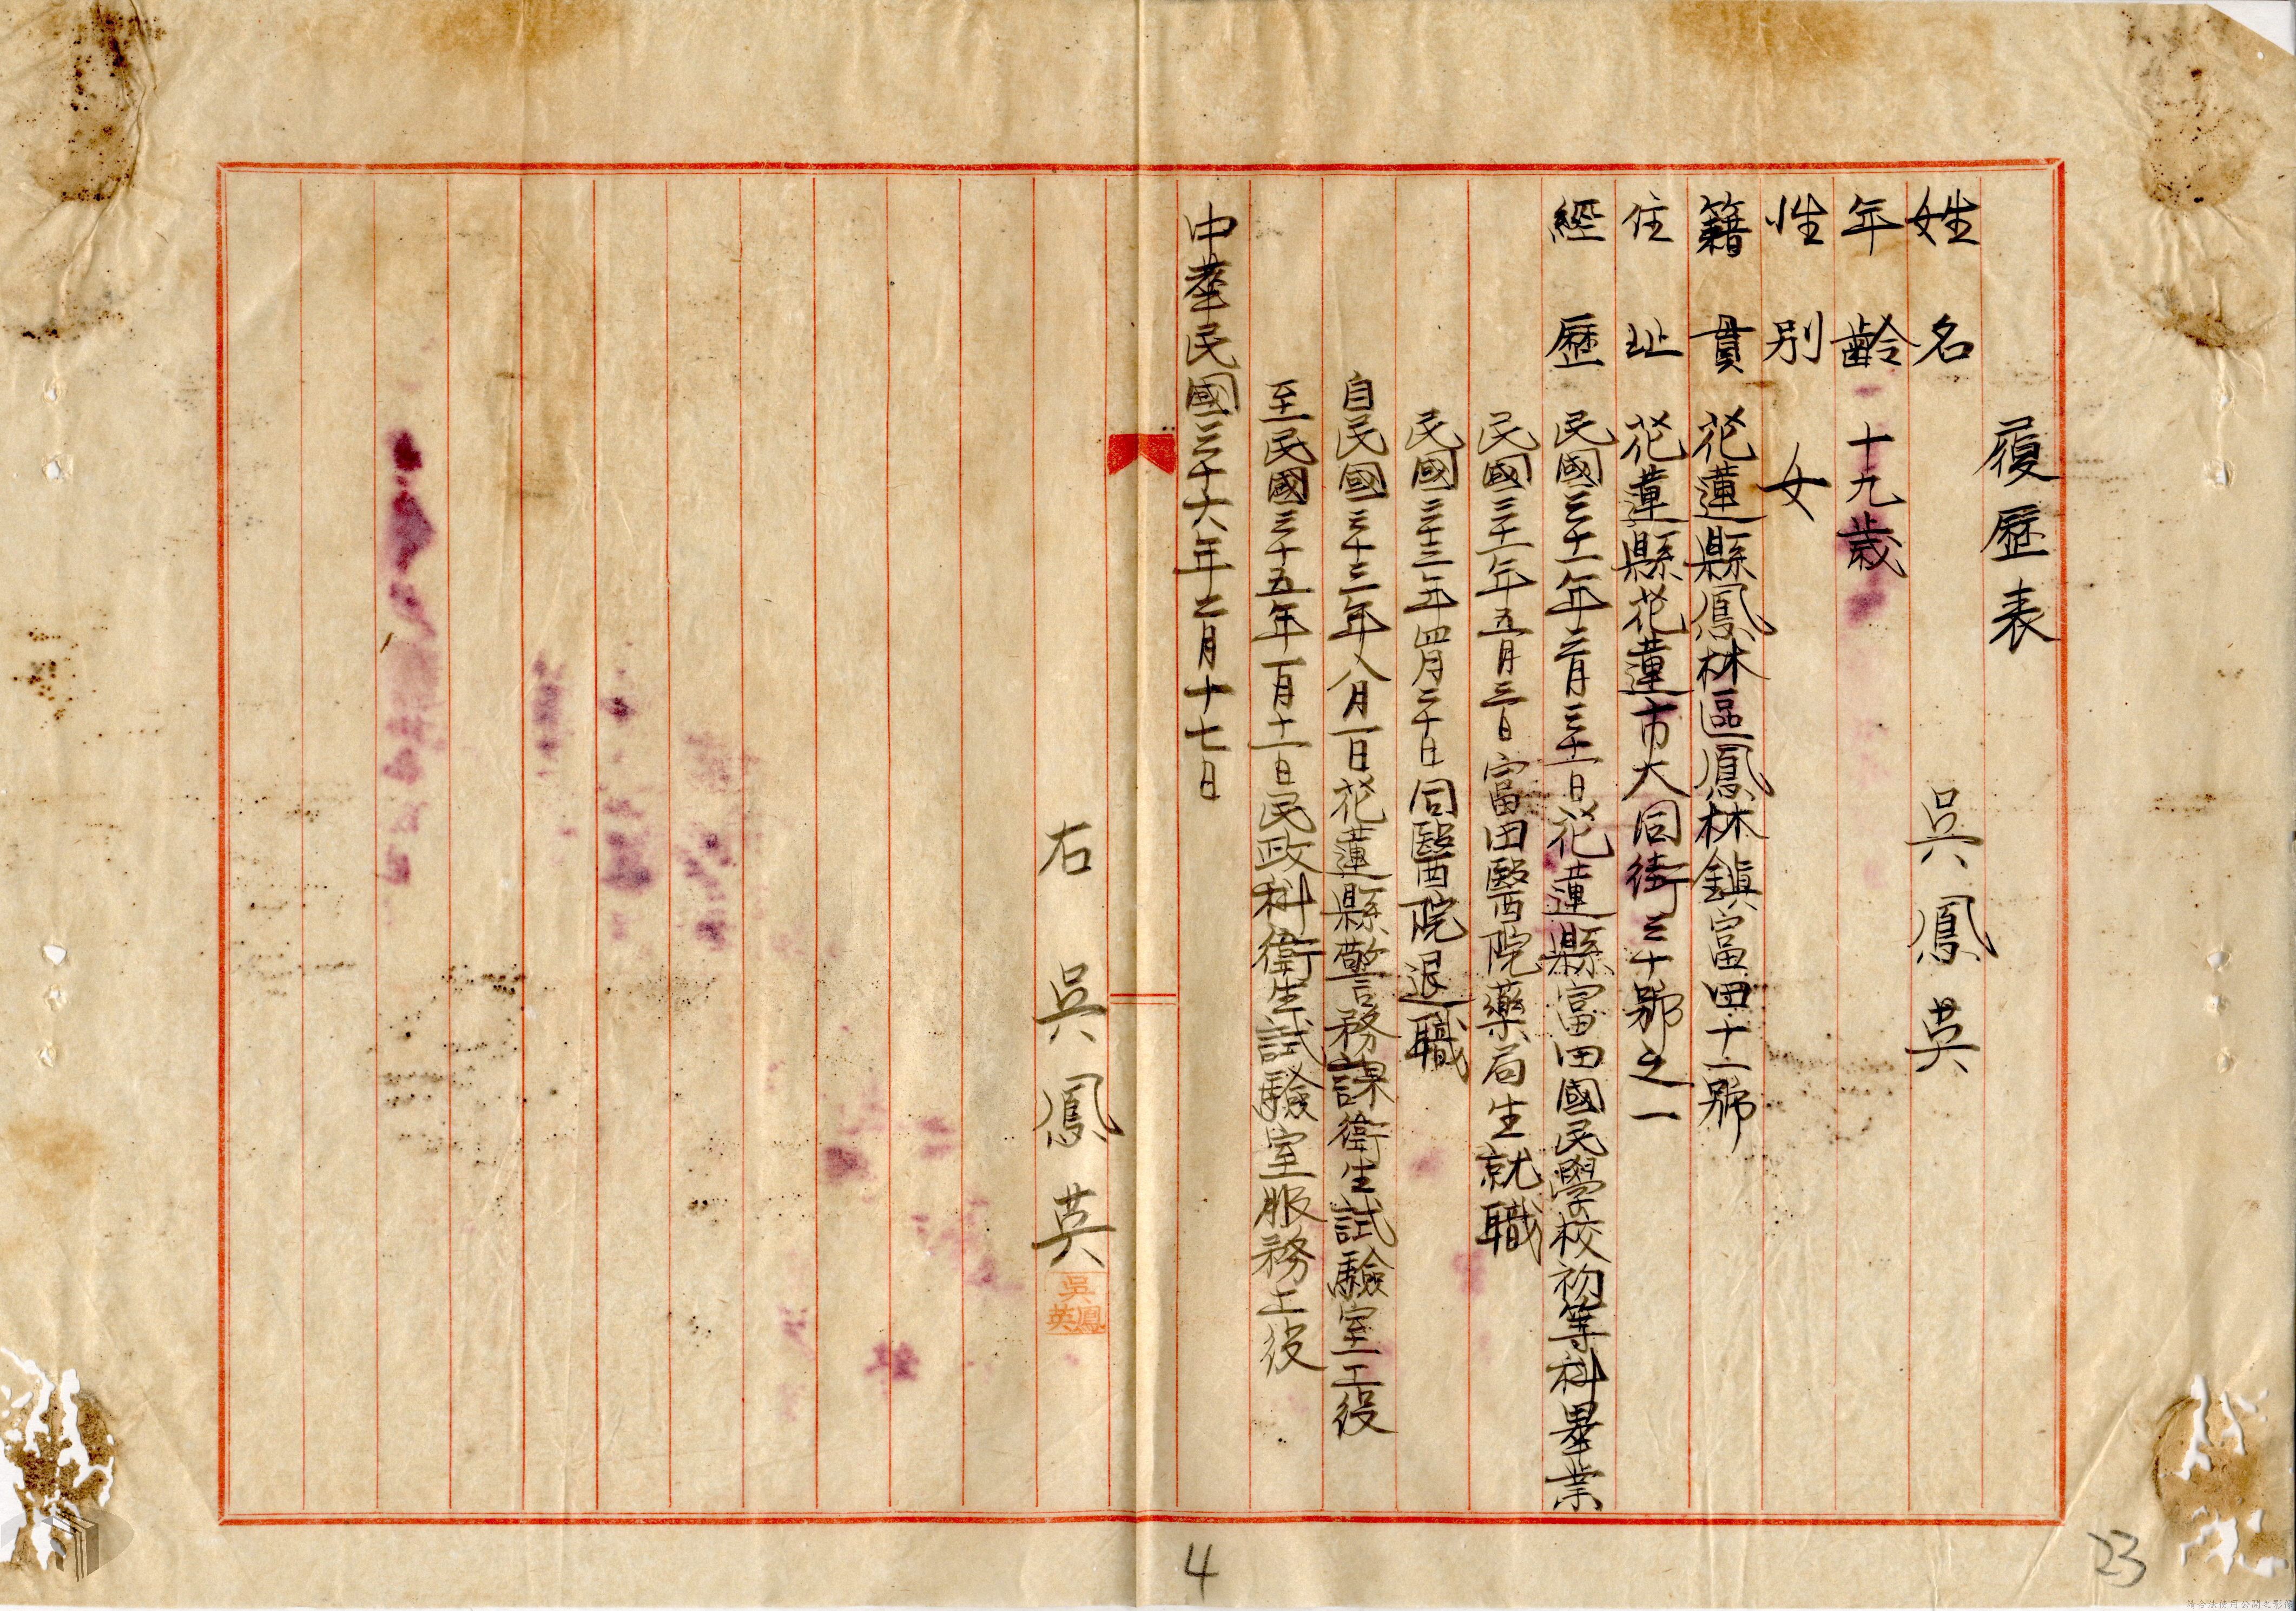 履歷表
姓名 吳鳳英
年齡 十九歲
性別 女
籍貫 花蓮縣鳳林區鳳林鎮富田十二號
住址 花蓮縣花蓮市大同街三十號之一
經歷 民國三十一年三月三十一日花蓮縣富田國民學校初等科畢業
民國三十一年五月三日富田醫院藥局生就職
民國三十三年四月三十日同醫院退職
自民國三十三年八月一日花蓮縣警務課衛生試驗室工役
至民國三十五年一月十一日民政科衛生試驗室服務工役
中華民國三十六年二月十七日
右 吳鳳英
吳鳳英
4
23
請合法使用公開之影像